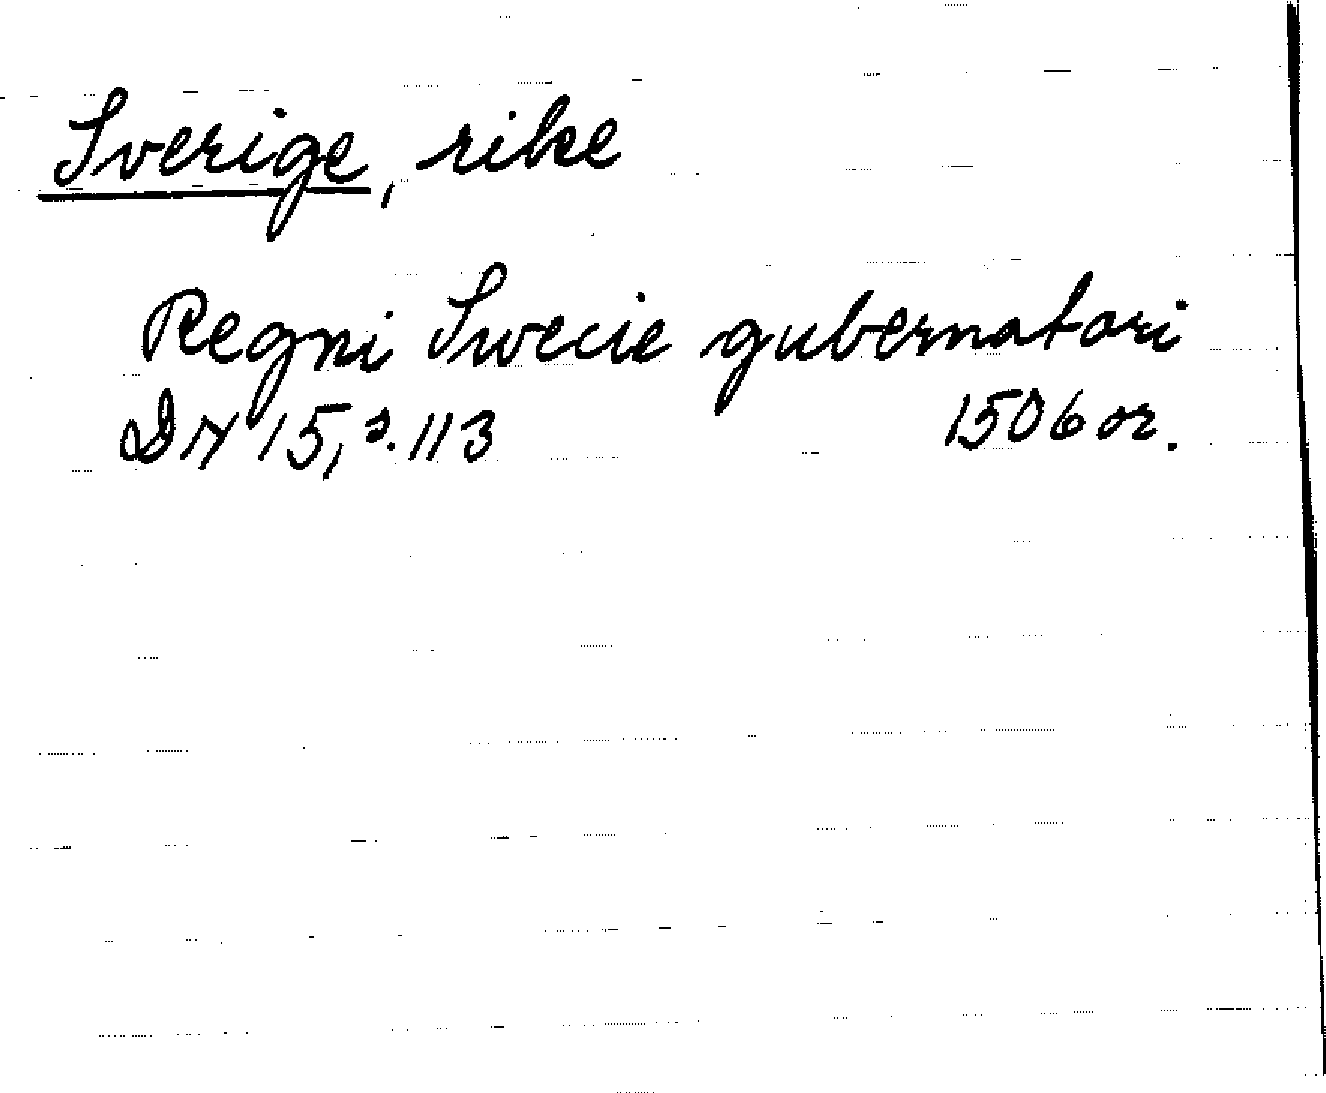 Sverige, rike
Regni Swecie gubernatori
DN 15, s. 113 1506 or.